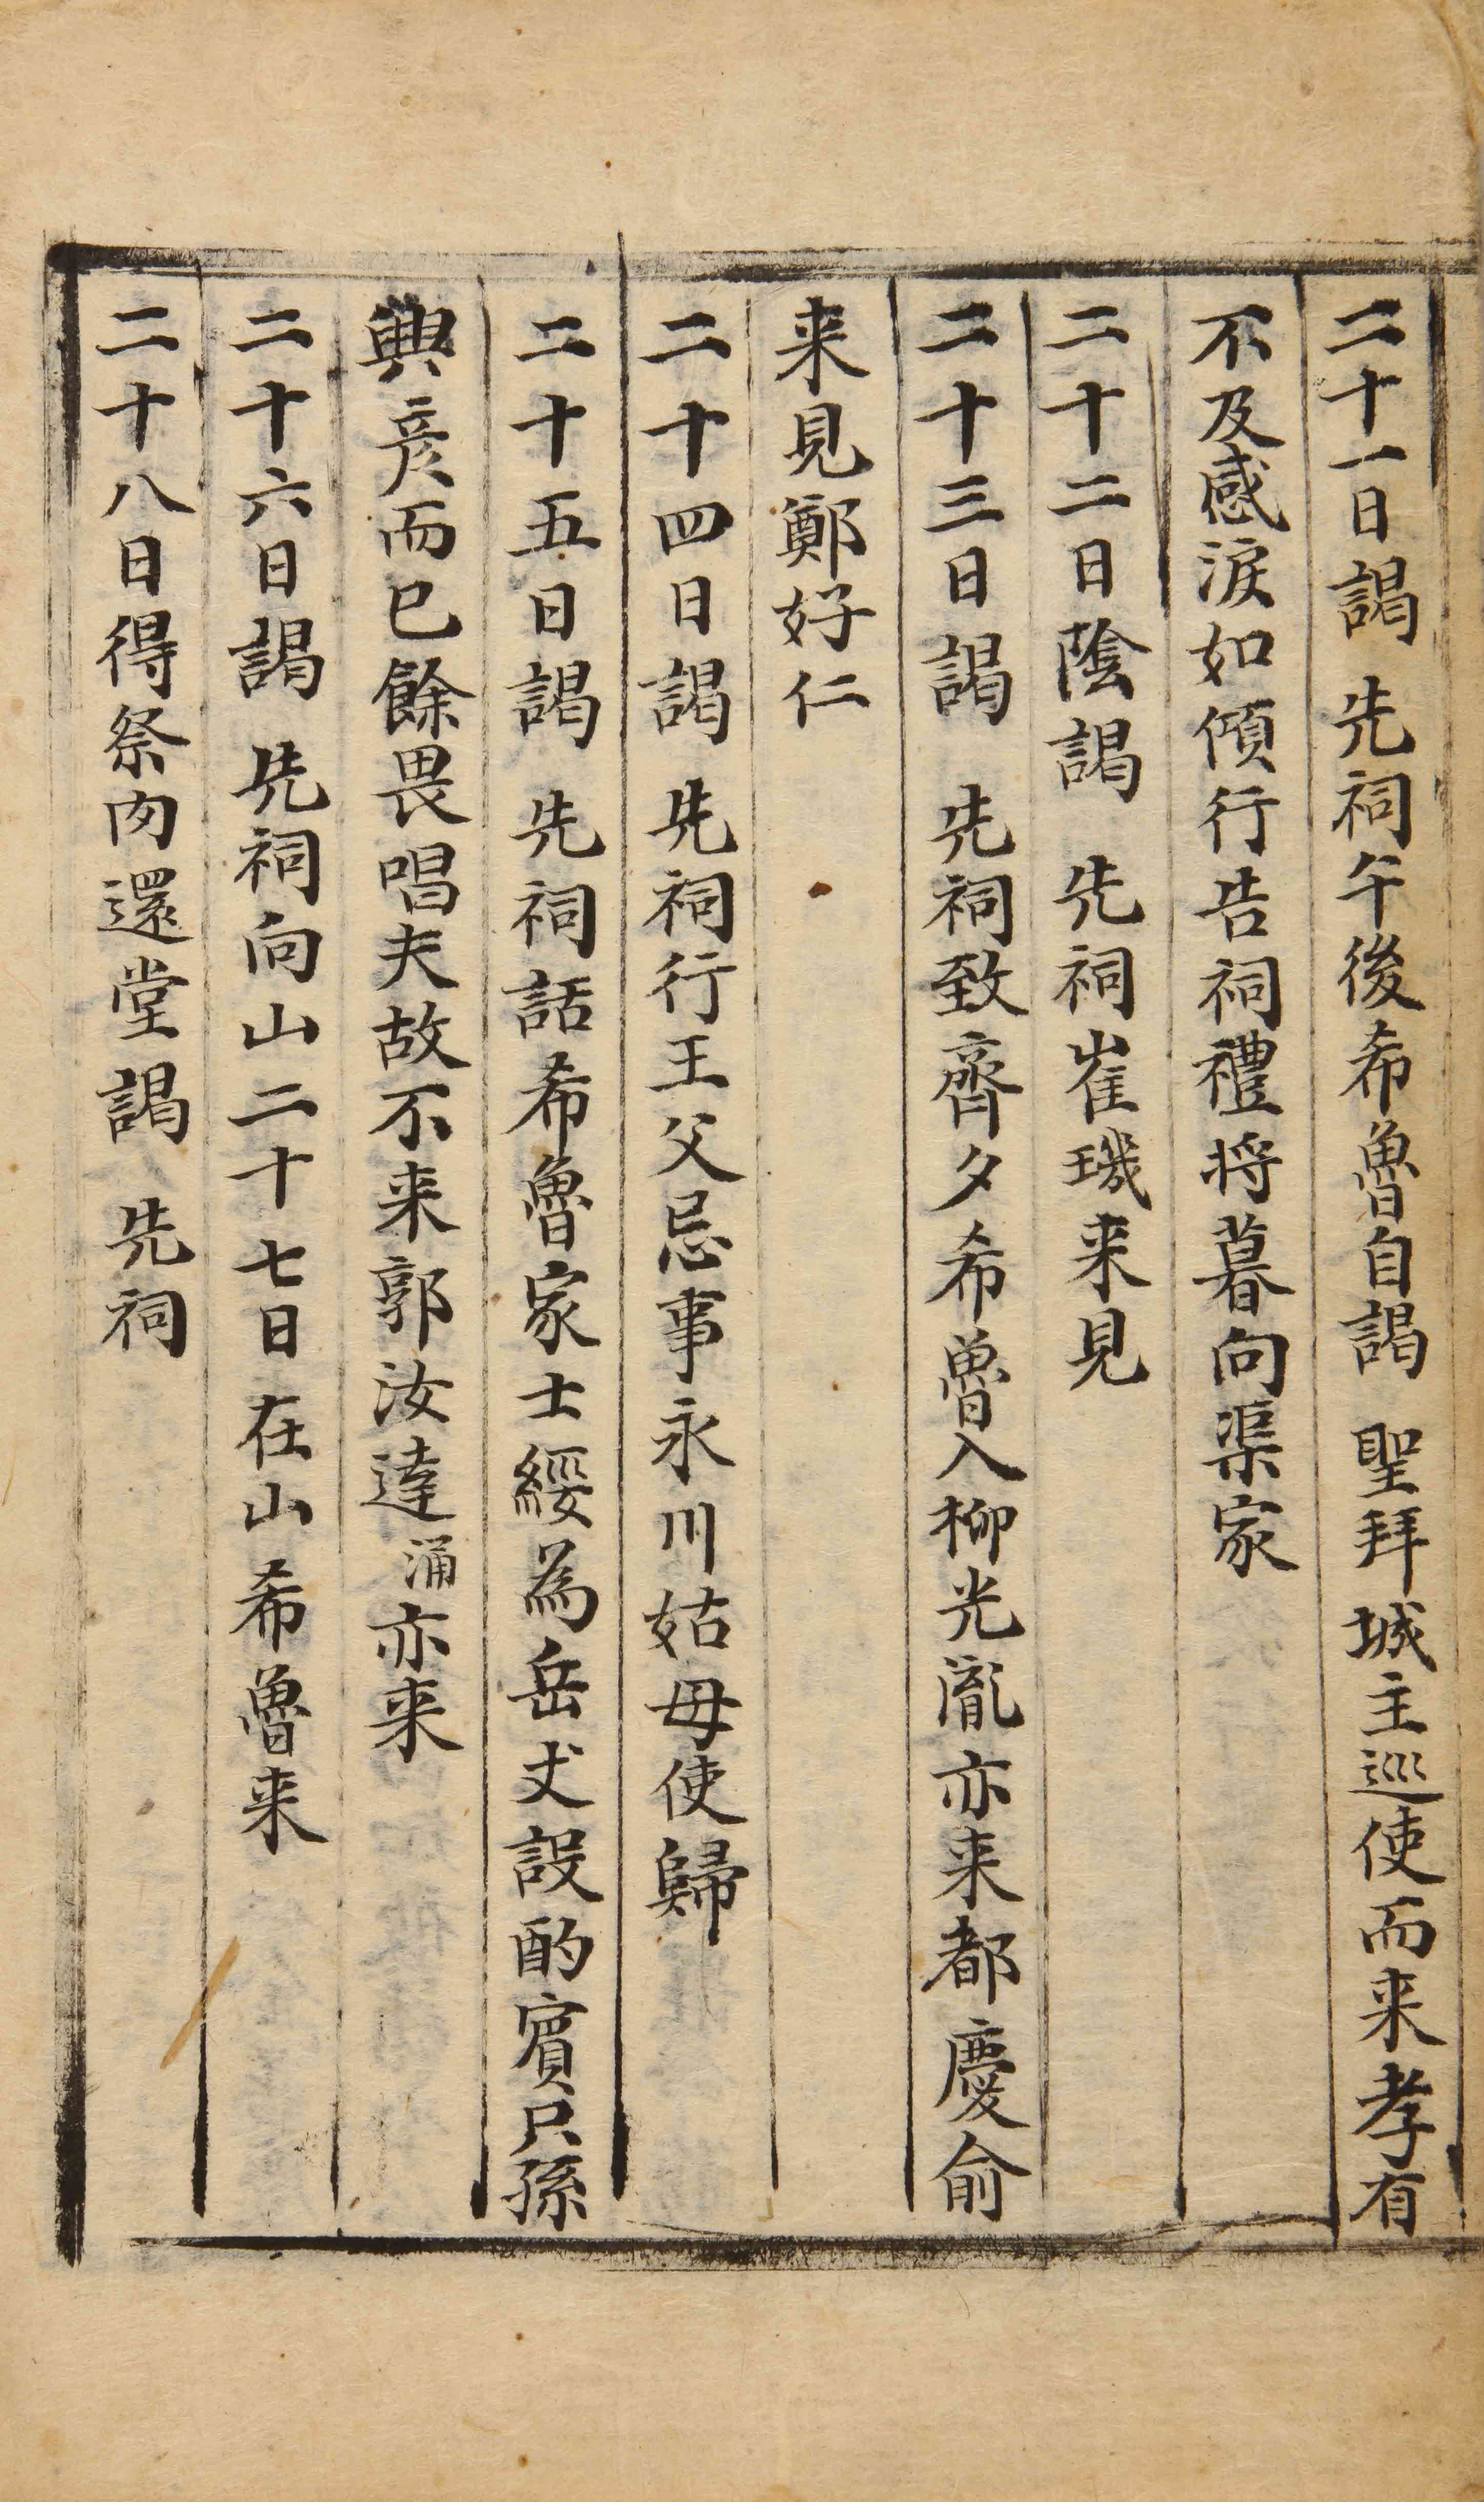 二十一日謁　先祠午後希魯自謁　聖拜城主巡使而来孝有
不及感淚如傾行告祠禮将暮向渠家
二十二日陰謁　先祠崔璣来見
二十三日謁　先祠致齊夕希魯入柳光胤亦来都慶俞
来見鄭好仁
二十四日謁　先祠行王父忌事永川姑母使歸
二十五日謁　先祠話希魯家士綏為岳丈設酌賓只孫
興彦而已餘畏唱夫故不来郭汝達涌亦来
二十六日謁　先祠向山二十七日在山希魯来
二十八日得祭肉還堂謁　先祠